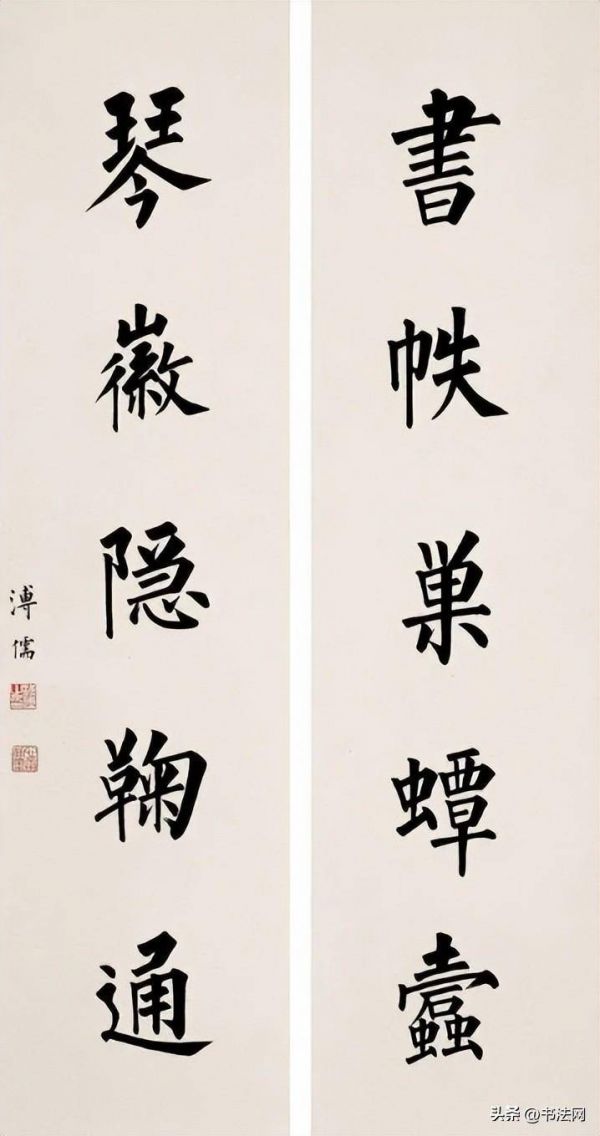 書帙巢蟫蠹
琴徽隐鞠通
溥儒
头条 @书法网